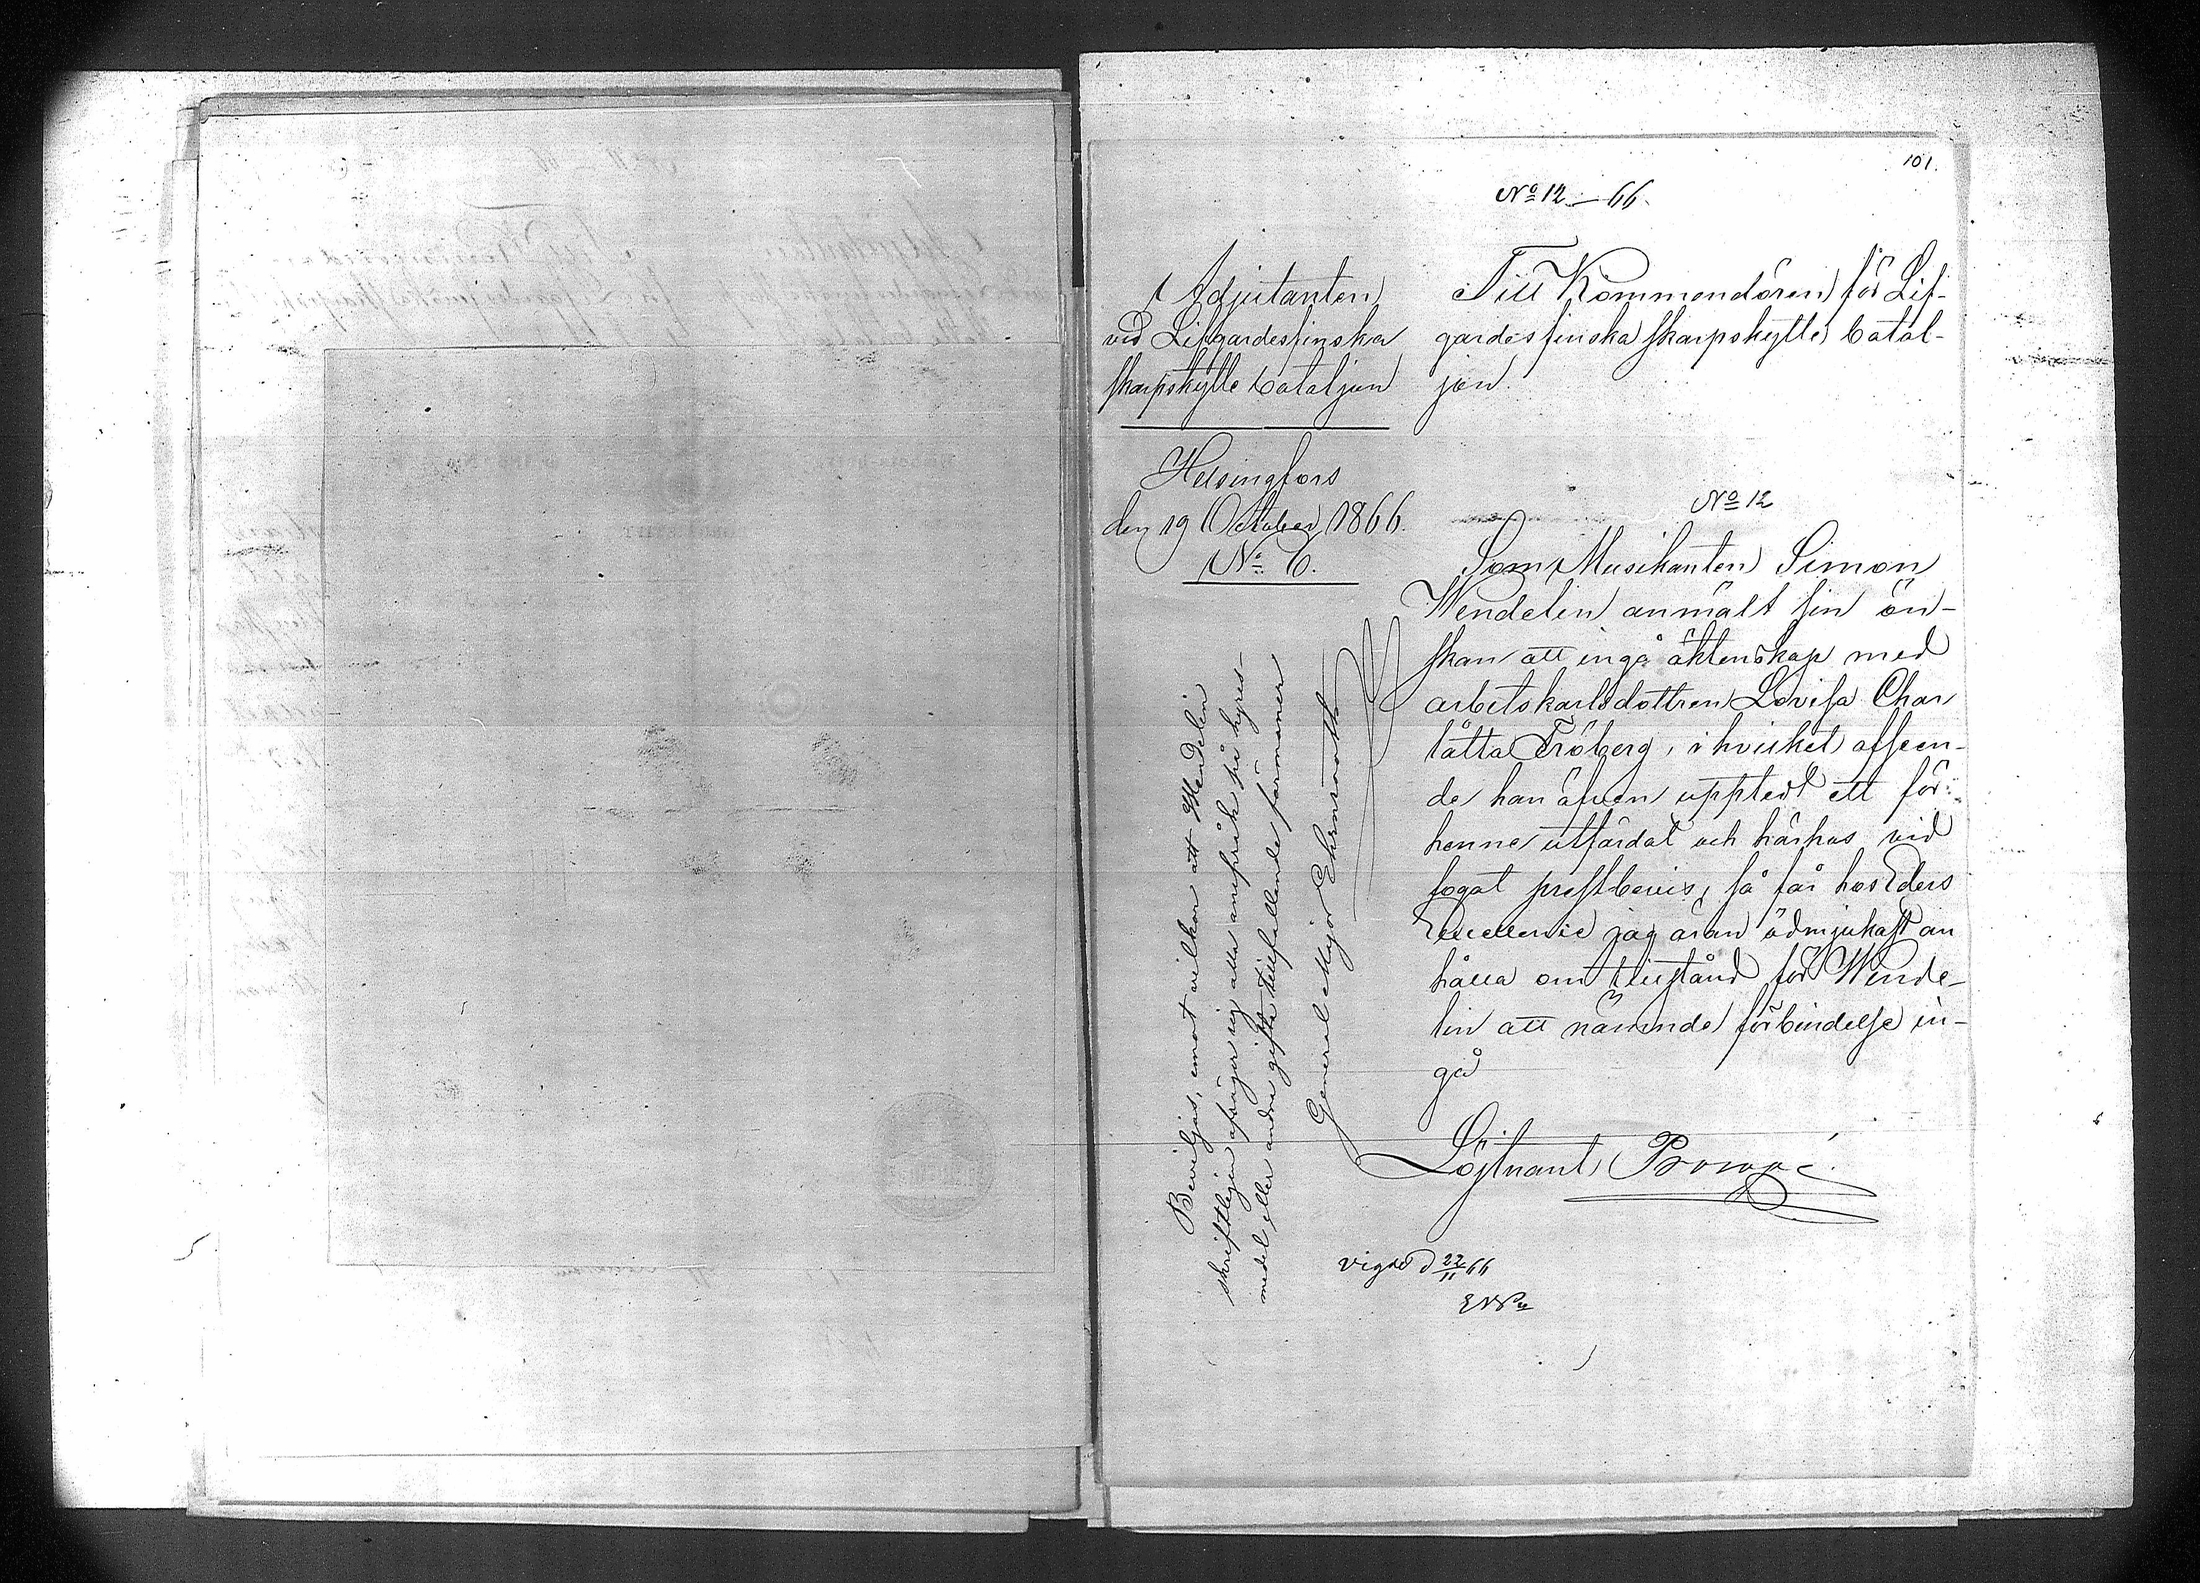 101.
No 12 — 66.
Adjutanten
vid Lifgardesfinska
skarpskytte bataljon
Helsingfors
den 19 October 1866.
No 6.
Till Kommendören för Lif-
gardesfinska skarpskytte batal-
jon.
No 12
Som Musikanten Simon
Wendelin anmält sin ön-
skan att ingå äktenskap med
arbetskarlsdottren Lovisa Char
låtta Fröberg, i hvilket afseen-
de han äfven uppted't ett för
henne utfärdat och härhos vid
fogat prestbevis, så får hos Eders
Excellence jag äran ödmjukast an
hålla om tillstånd för Wende-
lin att nämnde förbindelse in-
gå
Löjtnant
Beviljas, emot vilkor att Wendelin
skriftligen afsäger sig alla anspråk på hyres-
medel eller andra gifta tillfallande förmåner
General Major Ehrnrooth
vigde d 22/11 66